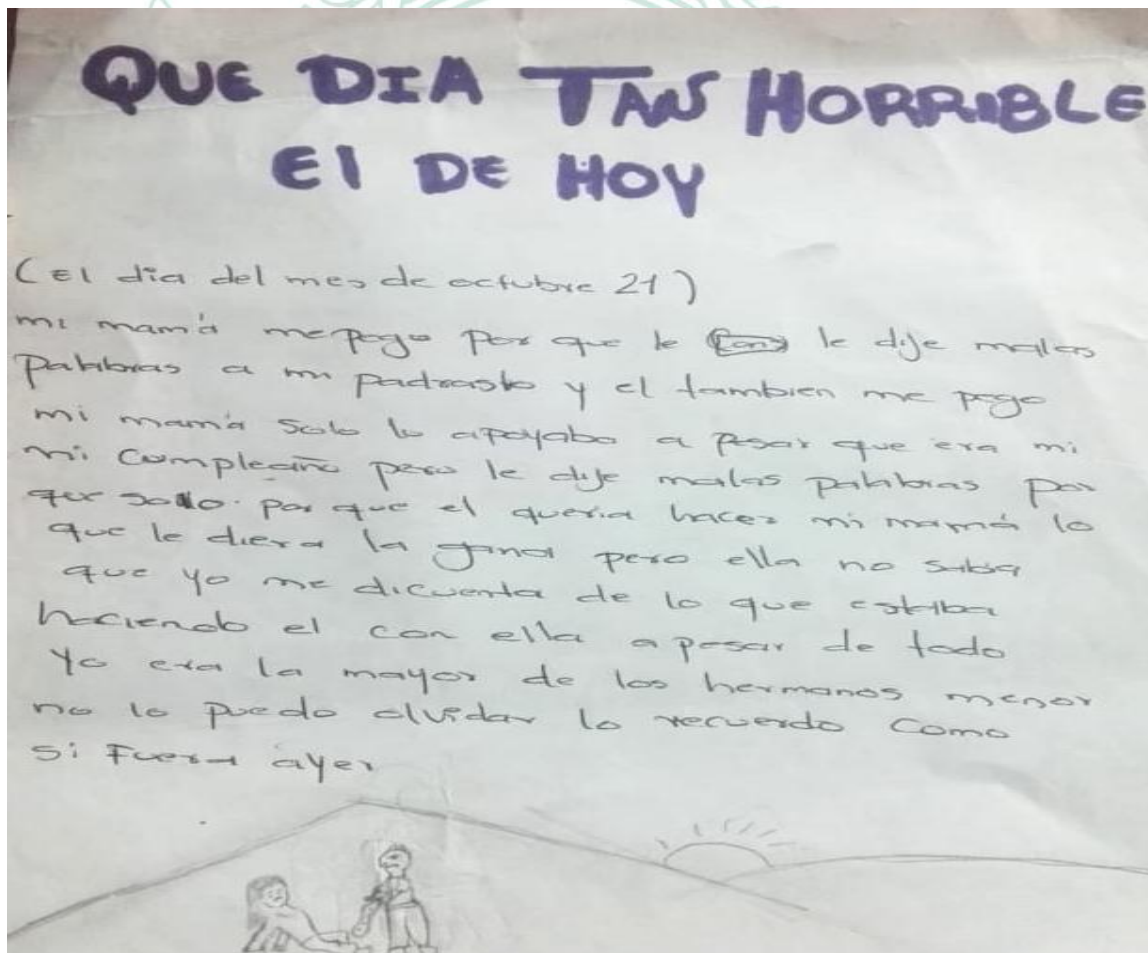 QUE DIA TAN HORRIBLE
El DE HOY
(El dia del mes de octubre 21)
mi mamá me pego por que le le dije malas
palabras a mi padrasto y el tambien me pego
mi mamá solo lo apoyaba a pesar que era mi
mi cumpleaño pero le dije malas palabras por
que solo. por que el queria hacer mi mamá lo
que le diera la gana pero ella no sabia
que yo me dicuenta de lo que estaba
haciendo el con ella apesar de todo
Yo era la mayor de los hermanos menor
no lo puedo olvidar lo recuerdo Como
si Fuera ayer